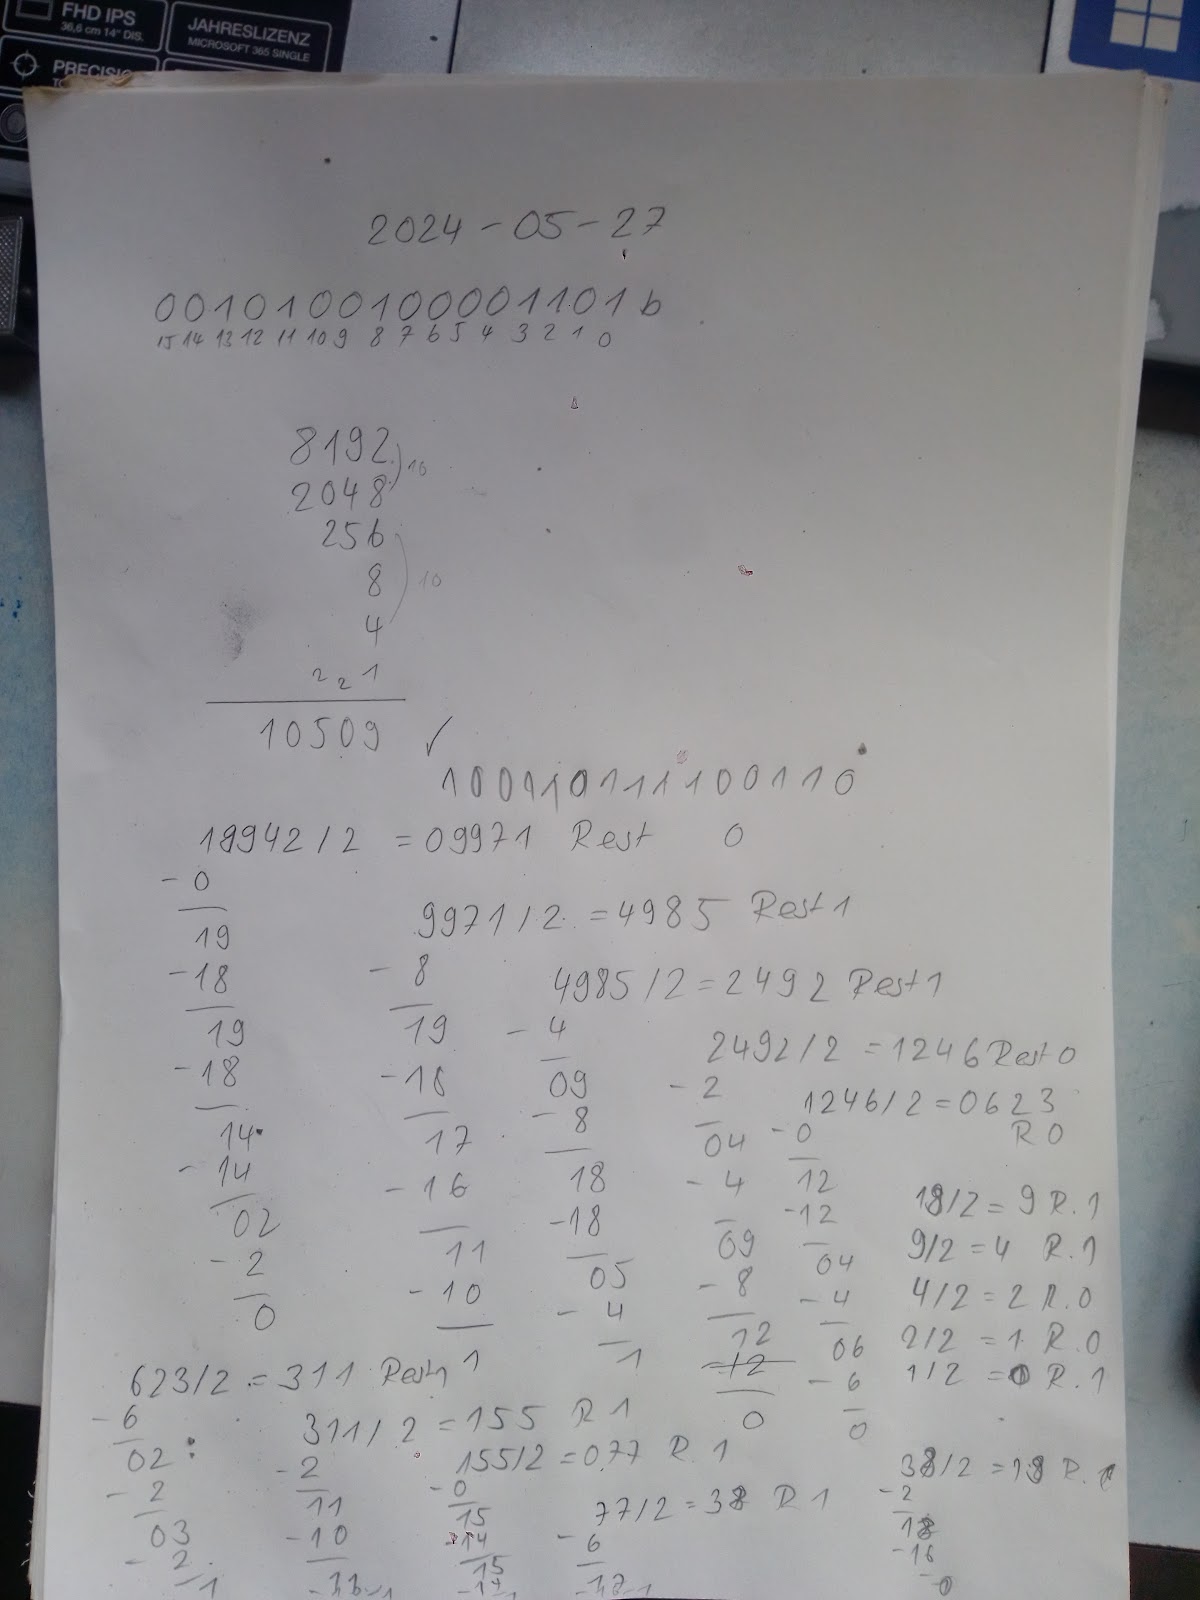 FHD IPS
36,6 cm 14" DIS.
JAHRESLIZENZ
MICROSOFT 365 SINGLE
2024-05-27
0010100100001101b
15 14 13 12 11 10 9 8 7 6 5 4 3 2 1 0
8192
2048
10
256
8
10
4
2 2 1
10509 ✓
18942/2 = 09971 Rest 0
-0
19
-18
19
-18
14
-14
02
-2
0
9971/2 = 4985 Rest 1
-8
19
-18
17
-16
11
-10
1
4985/2 = 2492 Rest 1
-4
09
-8
18
-18
05
-4
1
2492/2 = 1246 Rest 0
-2
04
-4
09
-8
12
12
0
1246/2 = 0623
R 0
-0
12
-12
04
-4
06
-6
0
18/2 = 9 R.1
9/2 = 4 R.1
4/2 = 2 R.0
2/2 = 1 R.0
1/2 = 0 R.1
623/2 = 311 Rest 1
-6
02
-2
03
-2
1
311/2 = 155 R 1
-2
11
-10
155/2 = 077 R.1
-0
15
-14
15
77/2 = 38 R 1
-6
38/2 =
-2
18
-16
0